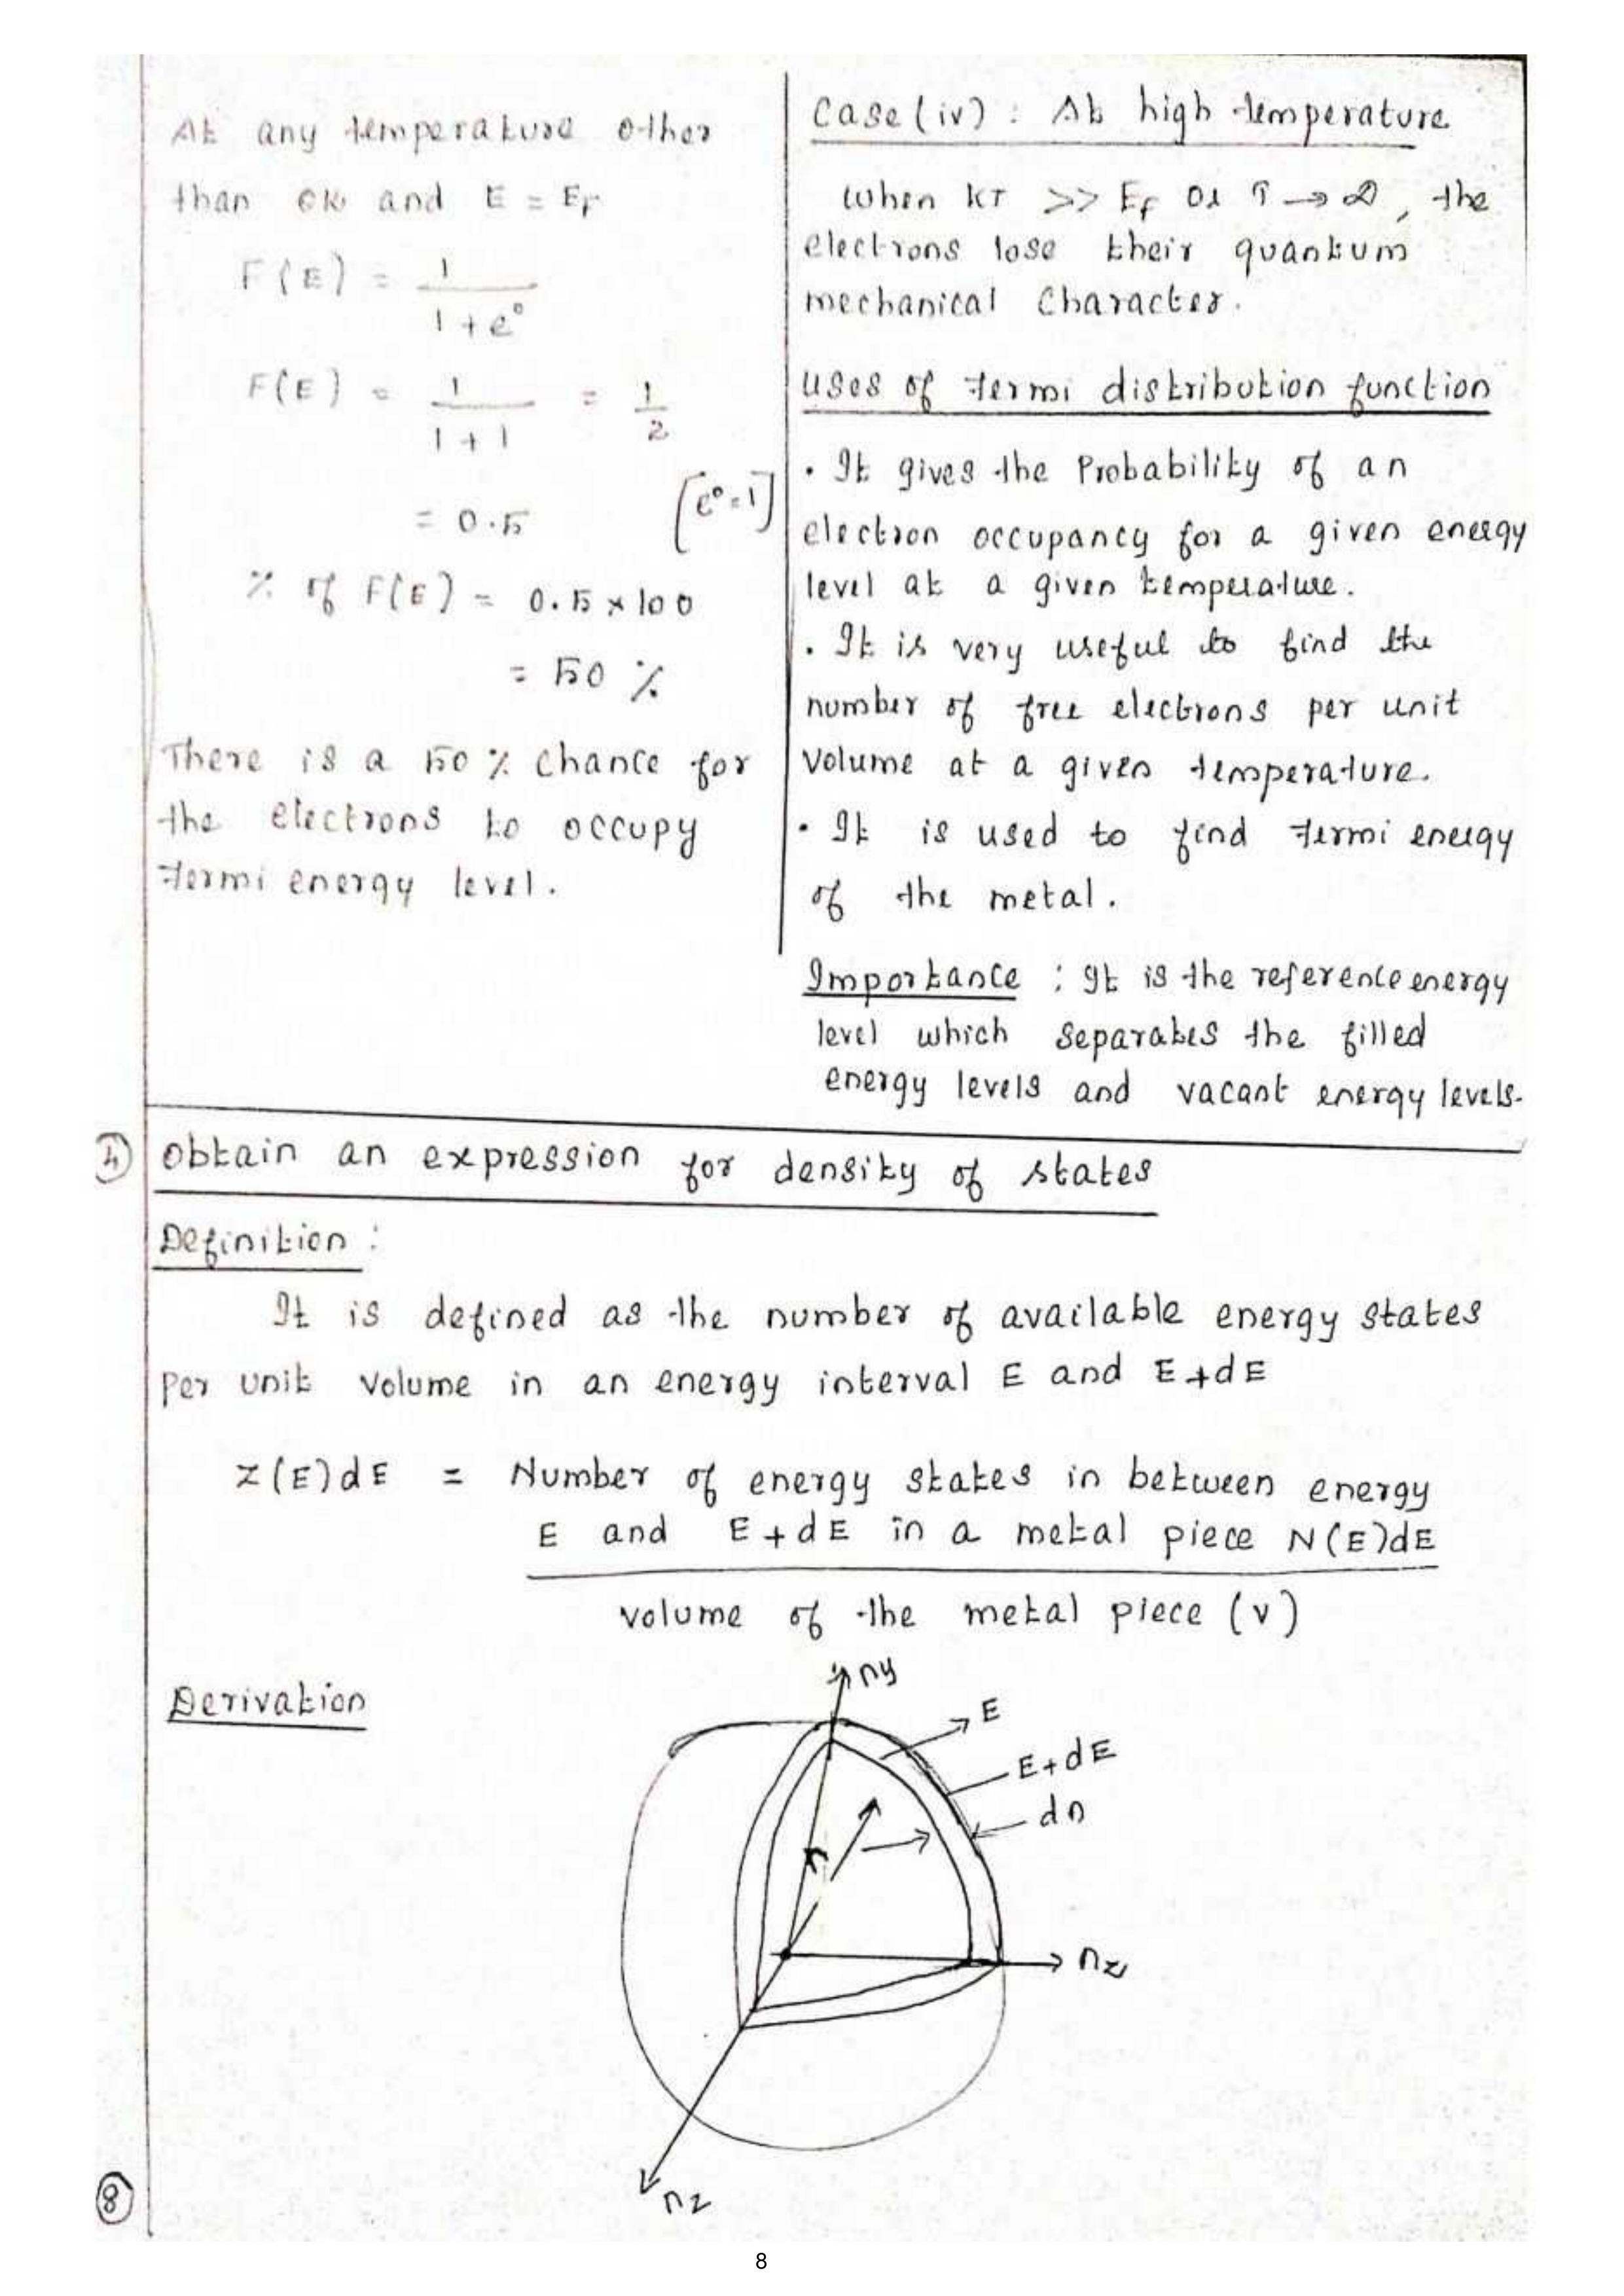 At any temperature other
than 0K and E = EF
F(E) = 1 / 1 + e⁰
F(E) = 1 / 1 + 1 = 1 / 2
= 0.5 [e⁰ = 1]
% of F(E) = 0.5 × 100
= 50 %
There is a 50 % chance for
the electrons to occupy
Fermi energy level.
Case (iv) : At high temperature
When KT >> EF or T → ∞, the
electrons lose their quantum
mechanical Character.
Uses of Fermi distribution function
• It gives the Probability of an
electron occupancy for a given energy
level at a given temperature.
• It is very useful to find the
number of free electrons per unit
Volume at a given temperature.
• It is used to find Fermi energy
of the metal.
Importance : It is the reference energy
level which separates the filled
energy levels and vacant energy levels.
4) Obtain an expression for density of states
Definition :
It is defined as the number of available energy states
per unit volume in an energy interval E and E+dE
Z(E)dE = Number of energy states in between energy
E and E+dE in a metal piece N(E)dE
volume of the metal piece (v)
Derivation
ny
E
E+dE
dn
r
nz
nz
8
8